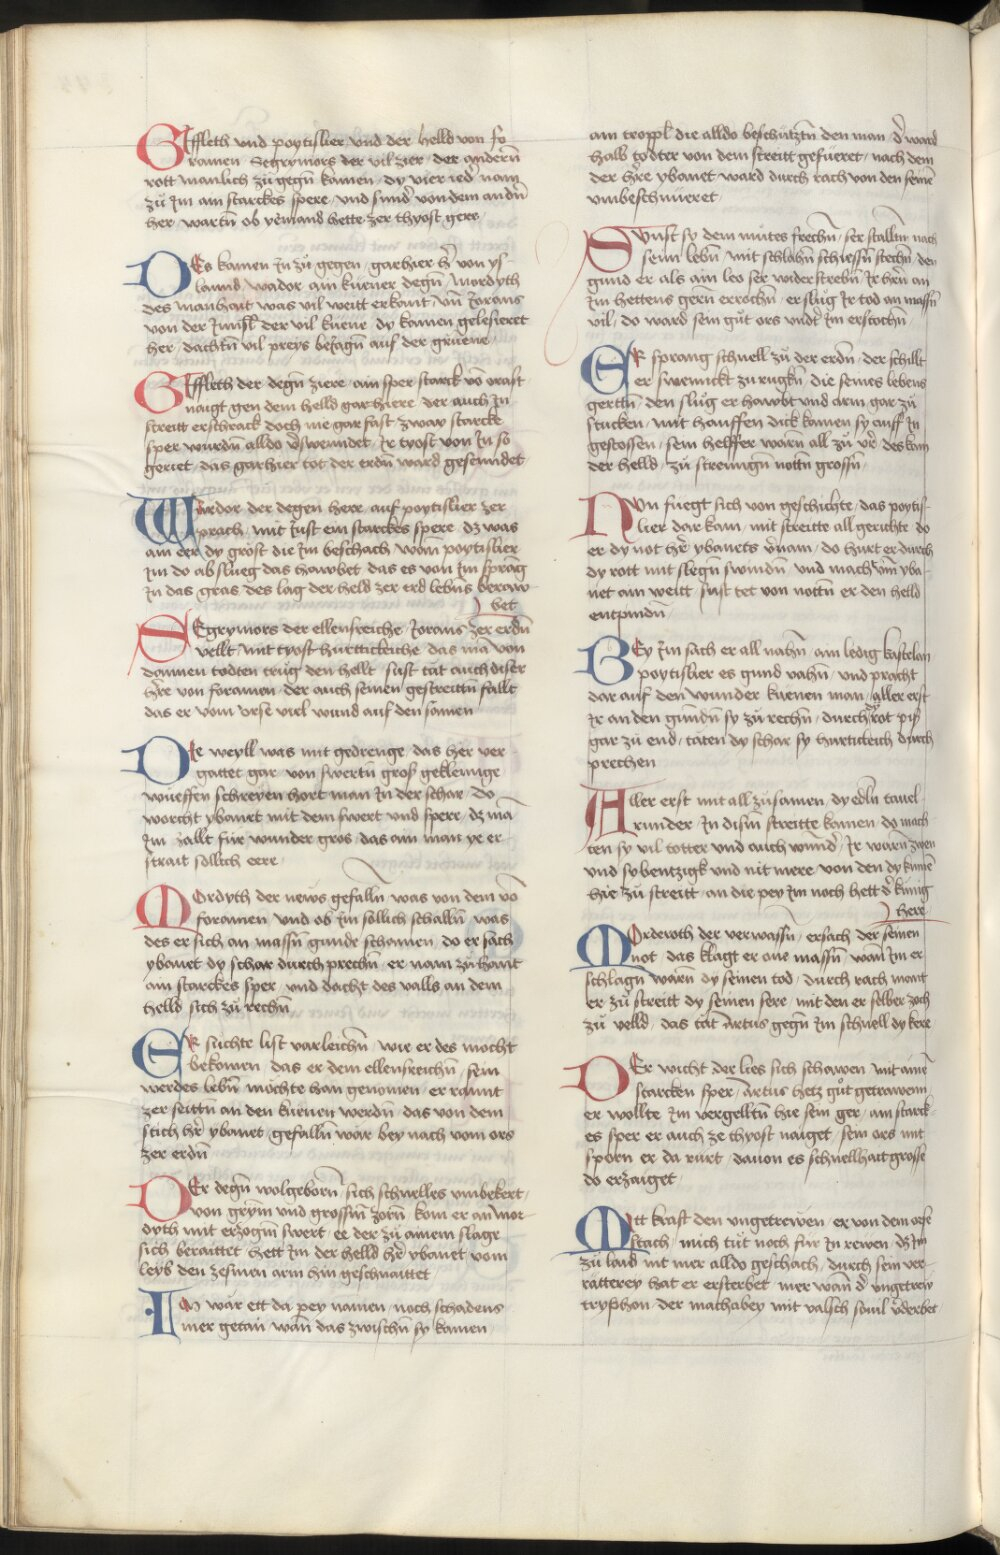 Giffleth vnd poytislier vnd der helld von fo
ramen Segrymors der vil zier der anderñ
rott manlich zů gegñ kamen dy vier yed nam
zů Jm am starckes spere vnd sund von dem andñ
her wartñ ob yemand hette zer thyost gere
Des kamen Jn zů gegen garhier h̄r von ys
lannd wador ain küener degñ Mordyth
des manhait was vil weitt erkant vn̄ Zorans
von der Jnsl der vil küene dy kamen geleisieret
her dachtñ vil preys beiagñ auf der grüene
Giffleth der degñ ziere ain sper starck vō orast
naigt gen dem helld garhiere der auch Jn
streitt erschrack doch nie gar fast zwar starcke
sper wurdñ alldo v̄swenndet Jr tyost von Jn so
geriet das garhier tot der erdñ ward gesenndet
Wardor der degen herr auf poytislier zer
prach mit Just ein starckes spere dz was
am eer dy gröst die Jm beschach wañ poytislier
Jm do abslueg das hawbet das es von Jm sprang
Jn das gras des lag der held zer erd lebñs beraw
bet
Segrymors der ellensreiche Zorans zer erdñ
vellt mit tyost hurttickeiche das mā von
dannen todten trůg den hellt sust tät auch diser
h̄re von foramen der auch seinen gestreittñ fallt
das er vom orse viel wund auf den samen
Die weyll was mit gedrenge das her ver
gattet gar von swertñ gros geklennge
wueffen schreyen hort man Jn der schar do
worcht ybanet mit dem swert vnd spere dz mā
Jm zallt für wunder gros das ain man ye er
strait sollich eere
Mordyth der news gefallñ was von dem vō
foramen vnd ob Jm sollich schallñ was
des er sich an massñ gunde schamen do er sach
ybanet dy schar durch prechñ er nam zů hant
am starckes sper vnd dacht des valls an dem
helld sich zů rechñ
Er sůchte list varleichñ wie er des mocht
bekomen das er dem ellensreichñ sein
werdes lebñ möchte han genomen er rannt
zer seittñ an den küenen werdñ das von dem
stich h̄r ybanet gefallñ wär bey nach vom ors
zer erdñ
Der degñ wolgeborñ sich schnelles vmbekert
von grym vnd grossm̄ zorñ kom er an mor
dyth mit erzogm̄ swert ee der zů ainem slage
sich beraittet hett Jm der helld h̄r ybanet vom
leyb den zesmen arm hin geschnaittet
Jm wär ett da pey namen noch schadens
mer getan wañ das zwischñ sy kamen
am troppl die alldo beschutztñ den man d̄ ward
halb todter von dem streitt gefüeret nach dem
der h̄re ybanet ward durch rach von den seinē
vmbeschnüeret
Sunst sy dem můtes frechñ ser stalltñ nach
seim lebñ mit schlahñ schiessñ stechñ den
gund er als ain leo ser widerstrebñ Jr h̄rñ an
Jm hettens gerñ errochñ er slůg Jr tod an massñ
vil do ward sein gůt ors vnd̄ Jm erstochñ
Er sprang schnell zů der erdñ der schillt
er swennckt zu rugkñ die seines lebens
gertñ den slůg er hawbt vnd arm gar zů
stucken mit hauffen dick kamen sy auff Jn
gestossen sein helffer warñ all zů v̄r des kam
der helld zů strenngñ nottñ grossñ
Nun fuegt sich von geschichte das poytis
lier dar kam mit streitte all gerichte do
er dy not h̄r ybanets v̄nam do hurt er durch
dy rott mit slegñ swindñ vnd macht vm̄ yba
net am weitt sust tet von nottñ er den helld
enntpindñ
Bey Jm sach er all nahñ ain ledig kastelan
poytislier es gund vahñ vnd pracht
dar auf den wunder küenen man aller erst
Jr an den gundñ sy zů rechñ durch rot pis
gar zů end täten dy schar sy hurtticleich durch
prechen
Aller erst mit all zůsamen dy edlñ tauel
runder Jn dism̄ streitte kamen do mach
ten sy vil totter vnd auch wund̄ Jr warñ zwen
vnd sybentzigk vnd nit mere von den dy kunnē
hie zů streitt an die pey Jm noch hett d̄ künig
here
Morderoth der verwassñ ersach der seinen
not das klagt er ane massñ wañ Jm er
schlagñ warñ dy seinen tod durch rach mant
er zů streitt dy seinen sere mit den er selber zoch
zů velld das tät Artus gegñ Jm schnell dy kere
Der wicht der lies sich schawen mit ainē
starcken sper Artus hetz gůt getrawem
er wollte Jm vergelltñ hie sein ger am starck
es sper er auch ze thyost naiget sein ors mit
sporn er da rürt dauon es schnellhait grosse
do erzaiget
Mit krafft den vngetrewen er von dem orse
stach mich tůt noch für Jn rewen dz Jm
zů laid nit mer alldo geschach durch sein ver
rätterey hat er ersterbet mer wañ d̄ vngetrew
tryphon der machabey mit valsch souil v̄derbet